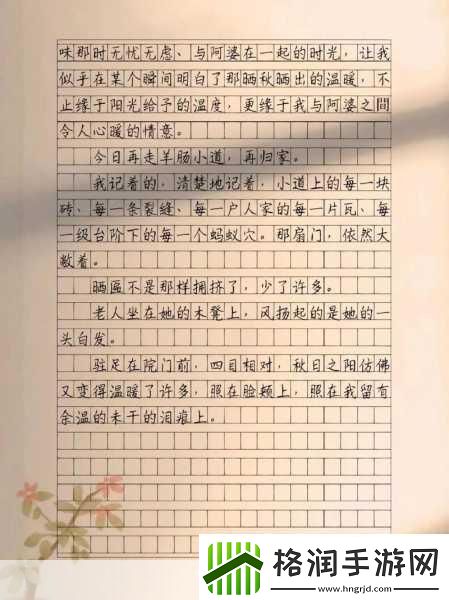 味那时无忧无虑、与阿婆在一起的时光，让我
似乎在某个瞬间明白了那晒秋晒出的温暖，不
止缘于阳光给予的温度，更缘于我与阿婆之間
令人心暖的情意。
今日再走羊肠小道，再归家。
我记着的，清楚地记着，小道上的每一块
砖、每一条裂缝、每一户人家的每一片瓦、每
一级台阶下的每一个蚂蚁穴。那扇门，依然大
敞着。
晒匾不是那样拥挤了，少了许多。
老人坐在她的木凳上，风扬起的是她的一
头白发。
驻足在院门前，四目相对，秋日之阳仿佛
又变得温暖了许多，照在脸颊上，照在我留有
余温的未干的泪痕上。
格润手游网
www.hngrjd.com